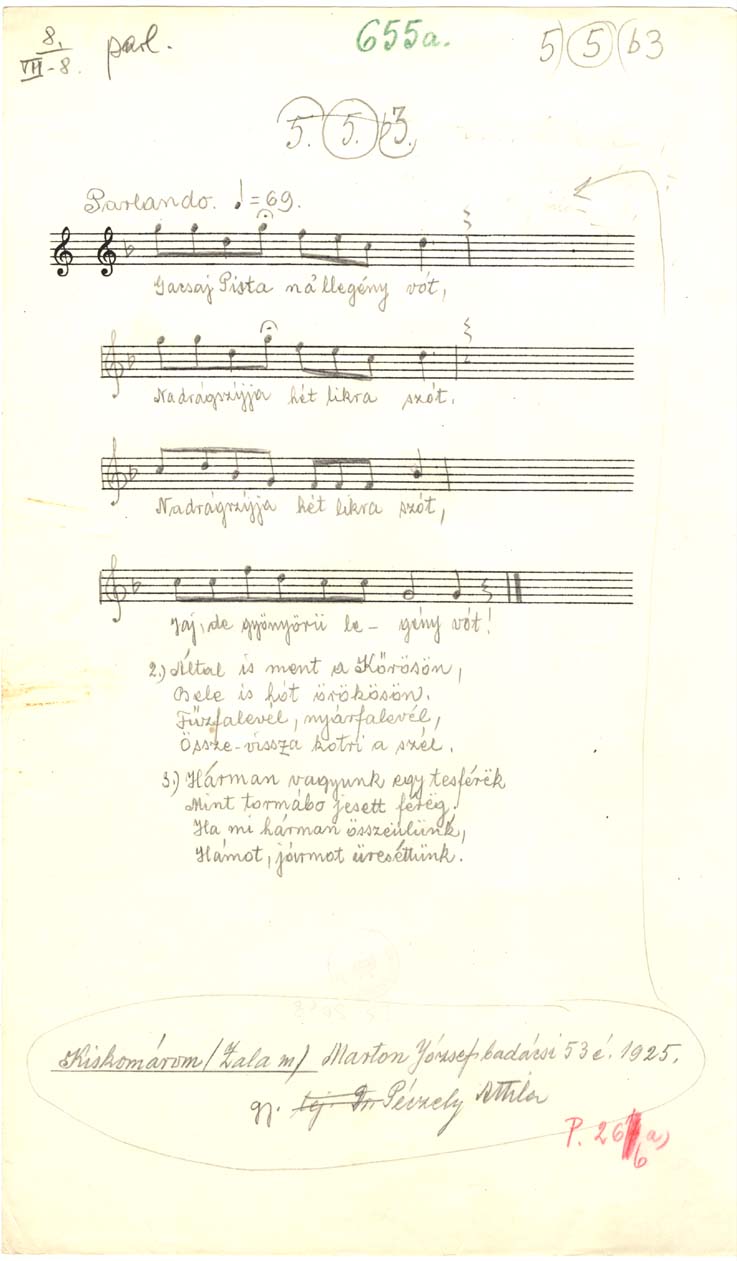 8.
VII-8.
parl.
655a.
5) (5) (b3
5. 5. b3.
Parlando. ♩=69.
Gacsaj Pista ná'llegény vót,
Nadrágszíjja hét likra szót.
Nadrágszíjja hét likra szót,
Jaj, de gyönyörü le- gény vót!
2.) Által is ment a Kőrösön,
Bele is hót örökösön.
Fűzfalevél, nyárfalevél,
Össze-vissza kotri a szél.
3.) Hárman vagyunk egy tesférëk
Mint tormábo jesett férëg.
Ha mi hárman összeülünk,
Hámot, jármot üreséttünk.
Kiskomárom (Zala m) Marton József badácsi 53 é. 1925.
gy. Péczely Attila
P. 26 6 a)